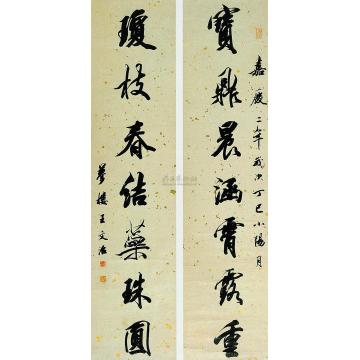 嘉慶二年歲次丁巳小陽月
寶鼎晨涵霄露重
瓊枝春結蕊珠圓
夢樓王文治